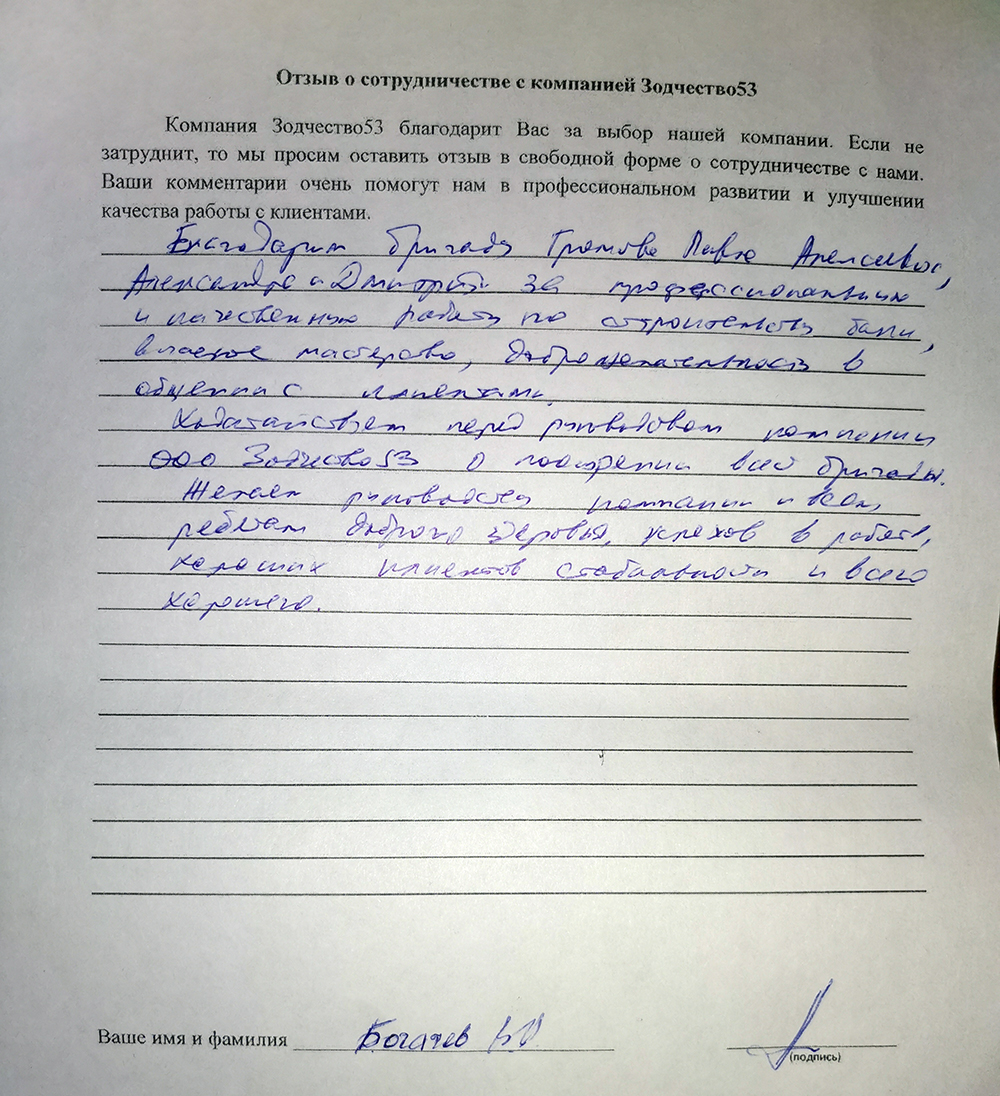 Отзыв о сотрудничестве с компанией Зодчество53
Компания Зодчество53 благодарит Вас за выбор нашей компании. Если не
затруднит, то мы просим оставить отзыв в свободной форме о сотрудничестве с нами.
Ваши комментарии очень помогут нам в профессиональном развитии и улучшении
качества работы с клиентами.
Благодарим бригаду Громова
Александра и Дмитрия за профессиональную
и качественную работу по строительству бани,
мастерство, доброжелательность в
общении с клиентами.
Ходатайствуем перед руководством компании
ООО Зодчество53 о поощрении всей бригады.
Желаем руководству компании и всем
ребятам доброго здоровья, успехов в работе,
хороших клиентов стабильности и всего
хорошего.
Ваше имя и фамилия Богачев
(подпись)